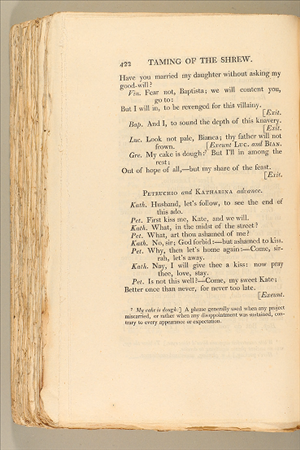 422 TAMING OF THE SHREW.
Have you married my daughter without asking my
good-will?
Vin. Fear not, Baptista; we will content you,
go to:
But I will in, to be revenged for this villainy.
[Exit.
Bap. And I, to sound the depth of this knavery.
[Exit.
Luc. Look not pale, Bianca; thy father will not
frown. [Exeunt LUC. and BIAN.
Gre. My cake is dough:⁷ But I'll in among the
rest;
Out of hope of all,—but my share of the feast.
[Exit.
PETRUCHIO and KATHARINA advance.
Kath. Husband, let's follow, to see the end of
this ado.
Pet. First kiss me, Kate, and we will.
Kath. What, in the midst of the street?
Pet. What, art thou ashamed of me?
Kath. No, sir; God forbid:—but ashamed to kiss.
Pet. Why, then let's home again:—Come, sir-
rah, let's away.
Kath. Nay, I will give thee a kiss: now pray
thee, love, stay.
Pet. Is not this well?—Come, my sweet Kate;
Better once than never, for never too late.
[Exeunt.
⁷ My cake is dough:] A phrase generally used when any project
miscarried, or rather when any disappointment was sustained, con-
trary to every appearance or expectation.